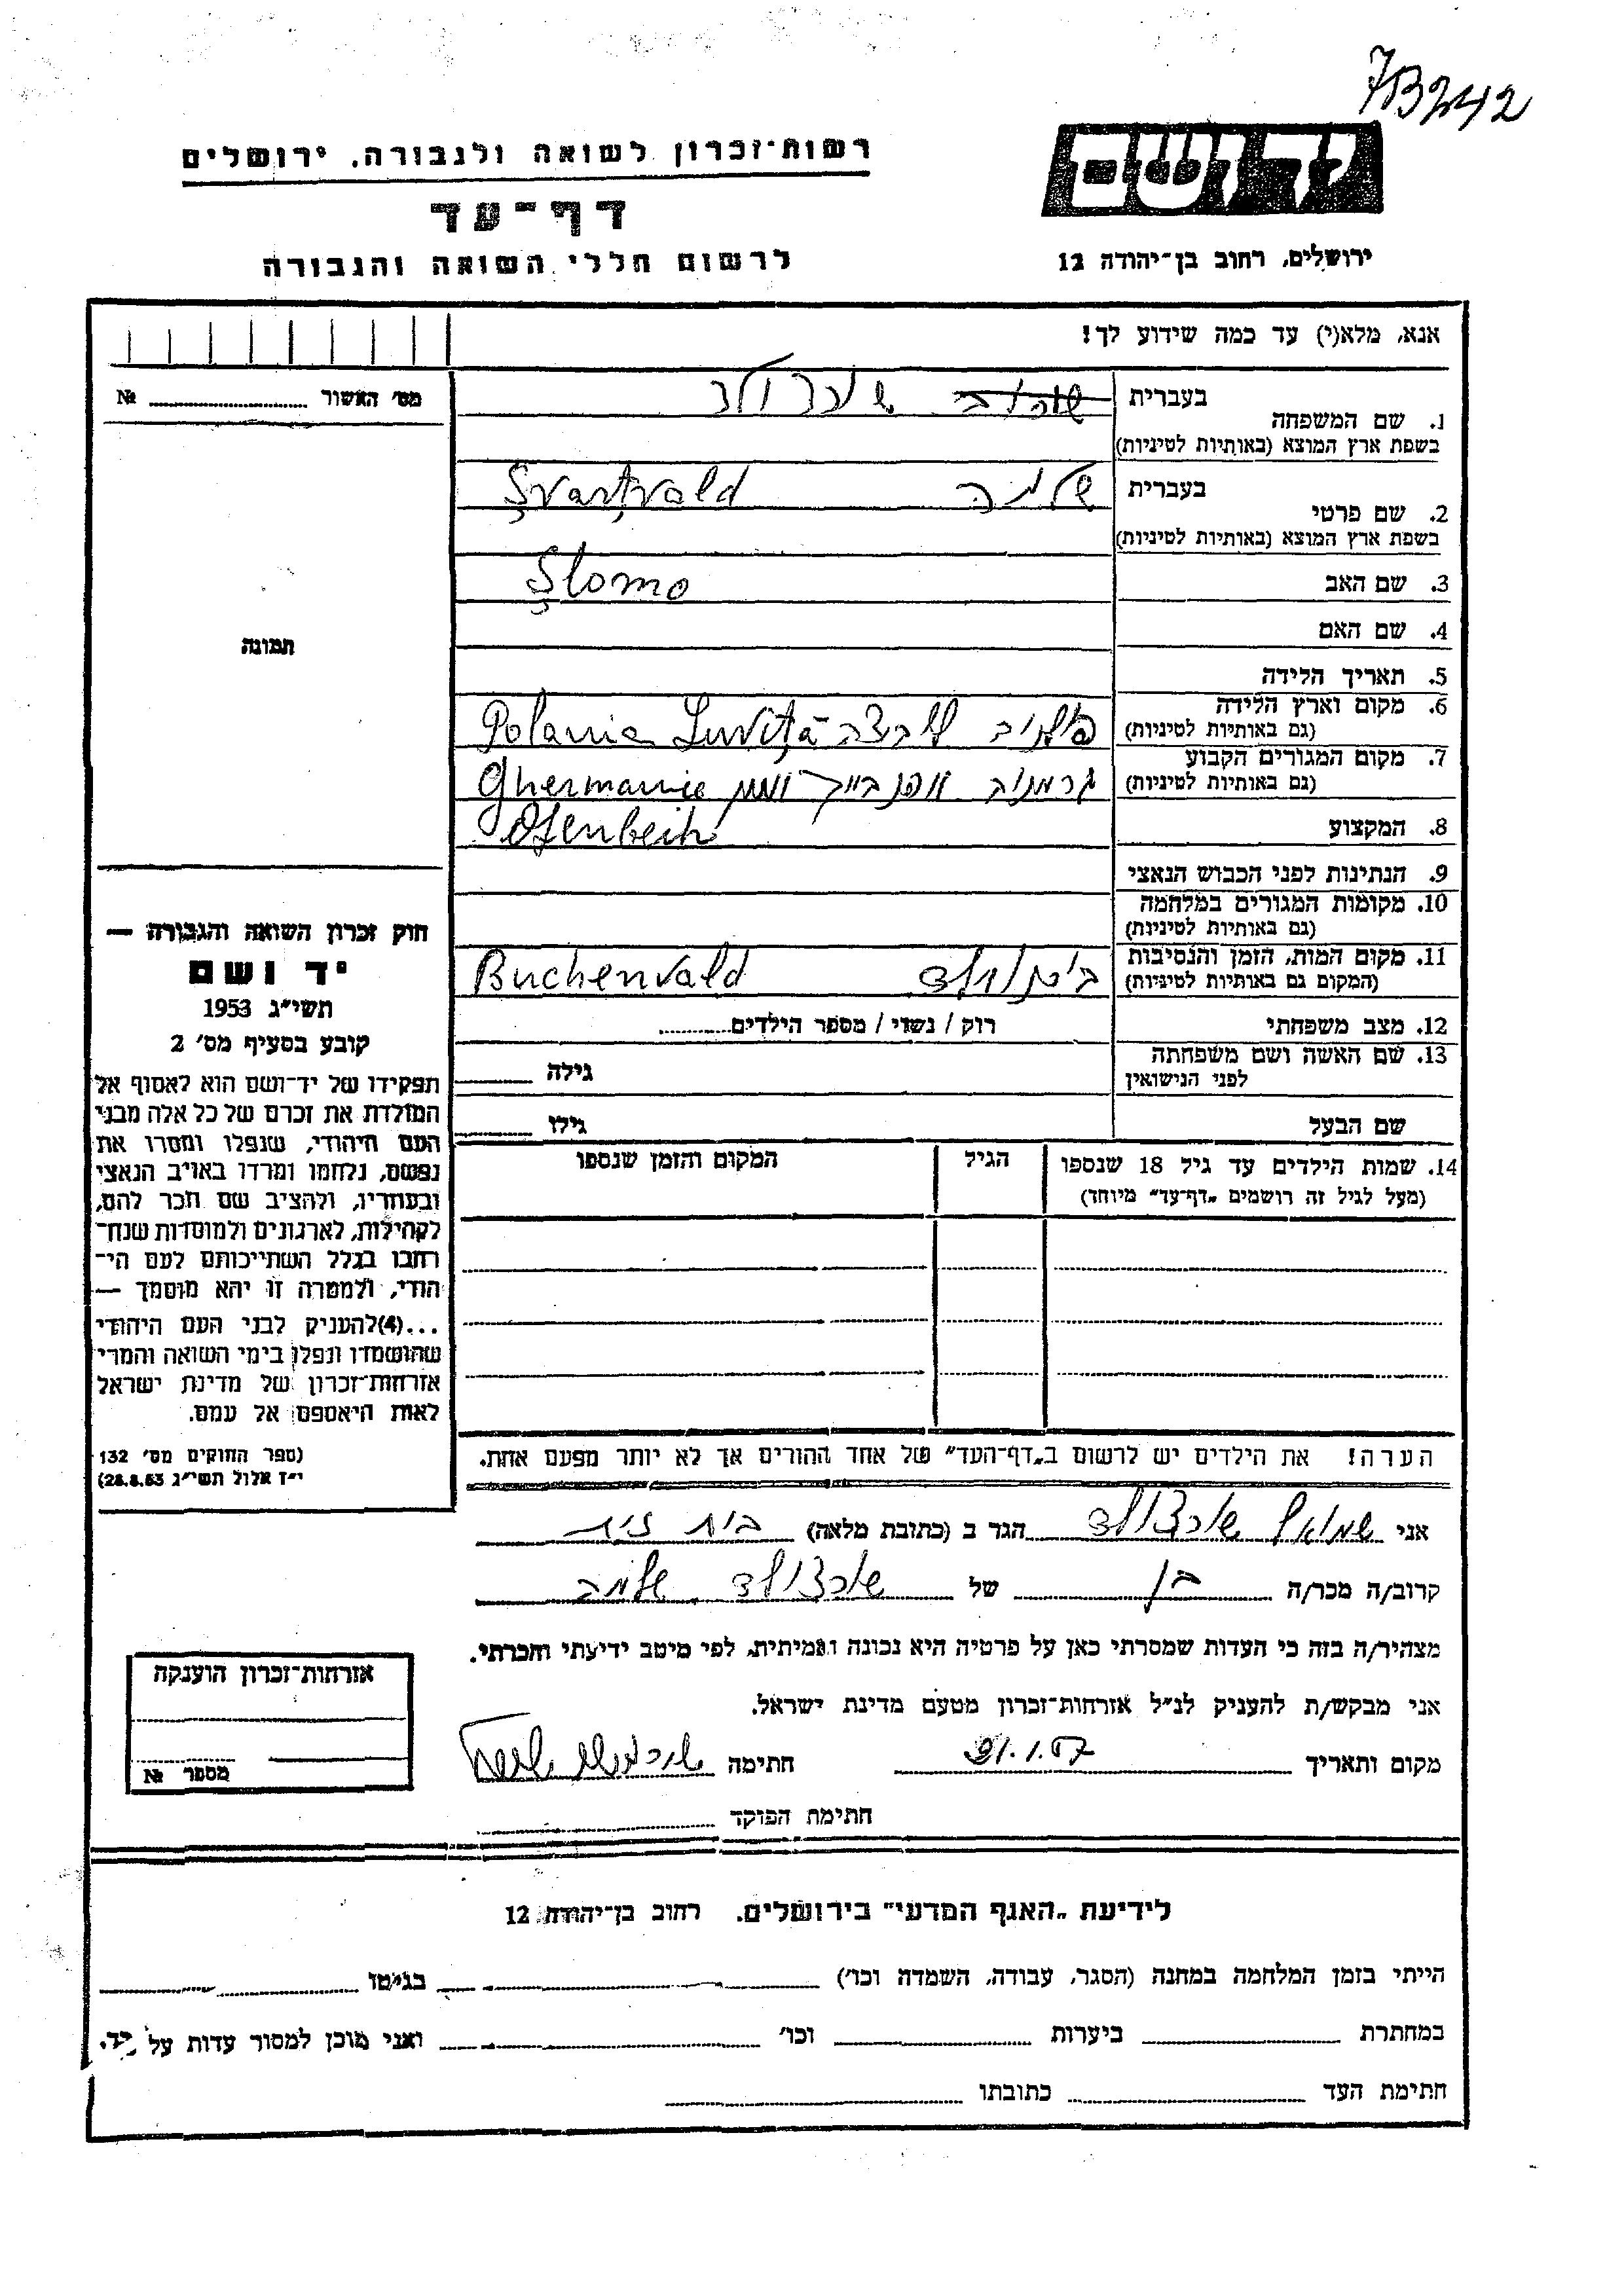 7B242
רשות־זכרון לשואה ולגבורה, ירושלים
דף־עד
לרשום חללי השואה והגבורה
יד ושם
ירושלים, רחוב בן־יהודה 12
אנא, מלא(י) עד כמה שידוע לך!
מס׳ האשור № 
תמונה
1. שם המשפחה
בעברית
בשפת ארץ המוצא (באותיות לטיניות)
Şvarţvald
2. שם פרטי
בעברית שלמה
בשפת ארץ המוצא (באותיות לטיניות)
Şlomo
3. שם האב
4. שם האם
5. תאריך הלידה
6. מקום וארץ הלידה
(גם באותיות לטיניות)
Polania
7. מקום המגורים הקבוע
(גם באותיות לטיניות)
Ghermania
Ofenbeih
8. המקצוע
9. הנתינות לפני הכבוש הנאצי
10. מקומות המגורים במלחמה
(גם באותיות לטיניות)
11. מקום המות, הזמן והנסיבות
(המקום גם באותיות לטיניות)
בוכנולד Buchenvald
12. מצב משפחתי
רוק / נשוי / מספר הילדים
13. שם האשה ושם משפחתה
לפני הנישואין
גילה
שם הבעל
גילו
14. שמות הילדים עד גיל 18 שנספו
(מעל לגיל זה רושמים „דף־עד״ מיוחד)
הגיל
המקום והזמן שנספו
הערה! את הילדים יש לרשום ב„דף־העד״ של אחד ההורים אך לא יותר מפעם אחת.
חוק זכרון השואה והגבורה —
יד ושם
תשי״ג 1953
קובע בסעיף מס׳ 2
תפקידו של יד־ושם הוא לאסוף אל
המולדת את זכרם של כל אלה מבני
העם היהודי, שנפלו ומסרו את
נפשם, נלחמו ומרדו באויב הנאצי
ובעוזריו, ולהציב שם וזכר להם,
לקהילות, לארגונים ולמוסדות שנח־
רבו בגלל השתייכותם לעם הי־
הודי, ולמטרה זו יהא מוסמך —
...(4)להעניק לבני העם היהודי
שהושמדו ונפלו בימי השואה והמרי
אזרחות־זכרון של מדינת ישראל
לאות היאספם אל עמם.
(ספר החוקים מס׳ 132
י״ז אלול תשי״ג 28.8.53)
אני שמואל שורצולד הגר ב (כתובת מלאה) בית זית
קרוב/ה מכר/ה בן של שורצולד שלמה
מצהיר/ה בזה כי העדות שמסרתי כאן על פרטיה היא נכונה ואמיתית, לפי מיטב ידיעתי והכרתי.
אני מבקש/ת להעניק לנ״ל אזרחות־זכרון מטעם מדינת ישראל.
מקום ותאריך חתימה
חתימת הפוקד
אזרחות־זכרון הוענקה
מספר №
לידיעת „האגף המדעי״ בירושלים, רחוב בן־יהודה 12
הייתי בזמן המלחמה במחנה (הסגר, עבודה, השמדה וכו׳) בגיטו
במחתרת ביערות וכו׳ ואני מוכן למסור עדות על יד.
חתימת העד כתובתו